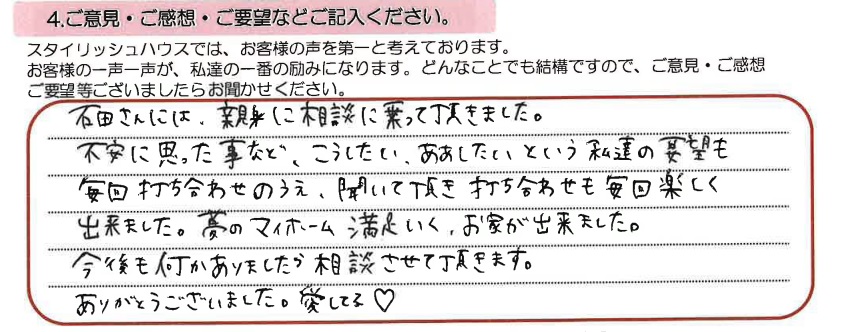 4.ご意見・ご感想・ご要望などご記入ください。
スタイリッシュハウスでは、お客様の声を第一と考えております。
お客様の一声一声が、私達の一番の励みになります。どんなことでも結構ですので、ご意見・ご感想
ご要望等ございましたらお聞かせください。
石田さんには、親身に相談に乗って頂きました。
不安に思った事など、こうしたい、ああしたいという私達の要望も
毎回打ち合わせのうえ、聞いて頂き打ち合わせも毎回楽しく
出来ました。夢のマイホーム満足いく、お家が出来ました。
今後も何かありましたら相談させて頂きます。
ありがとうございました。愛してる♡